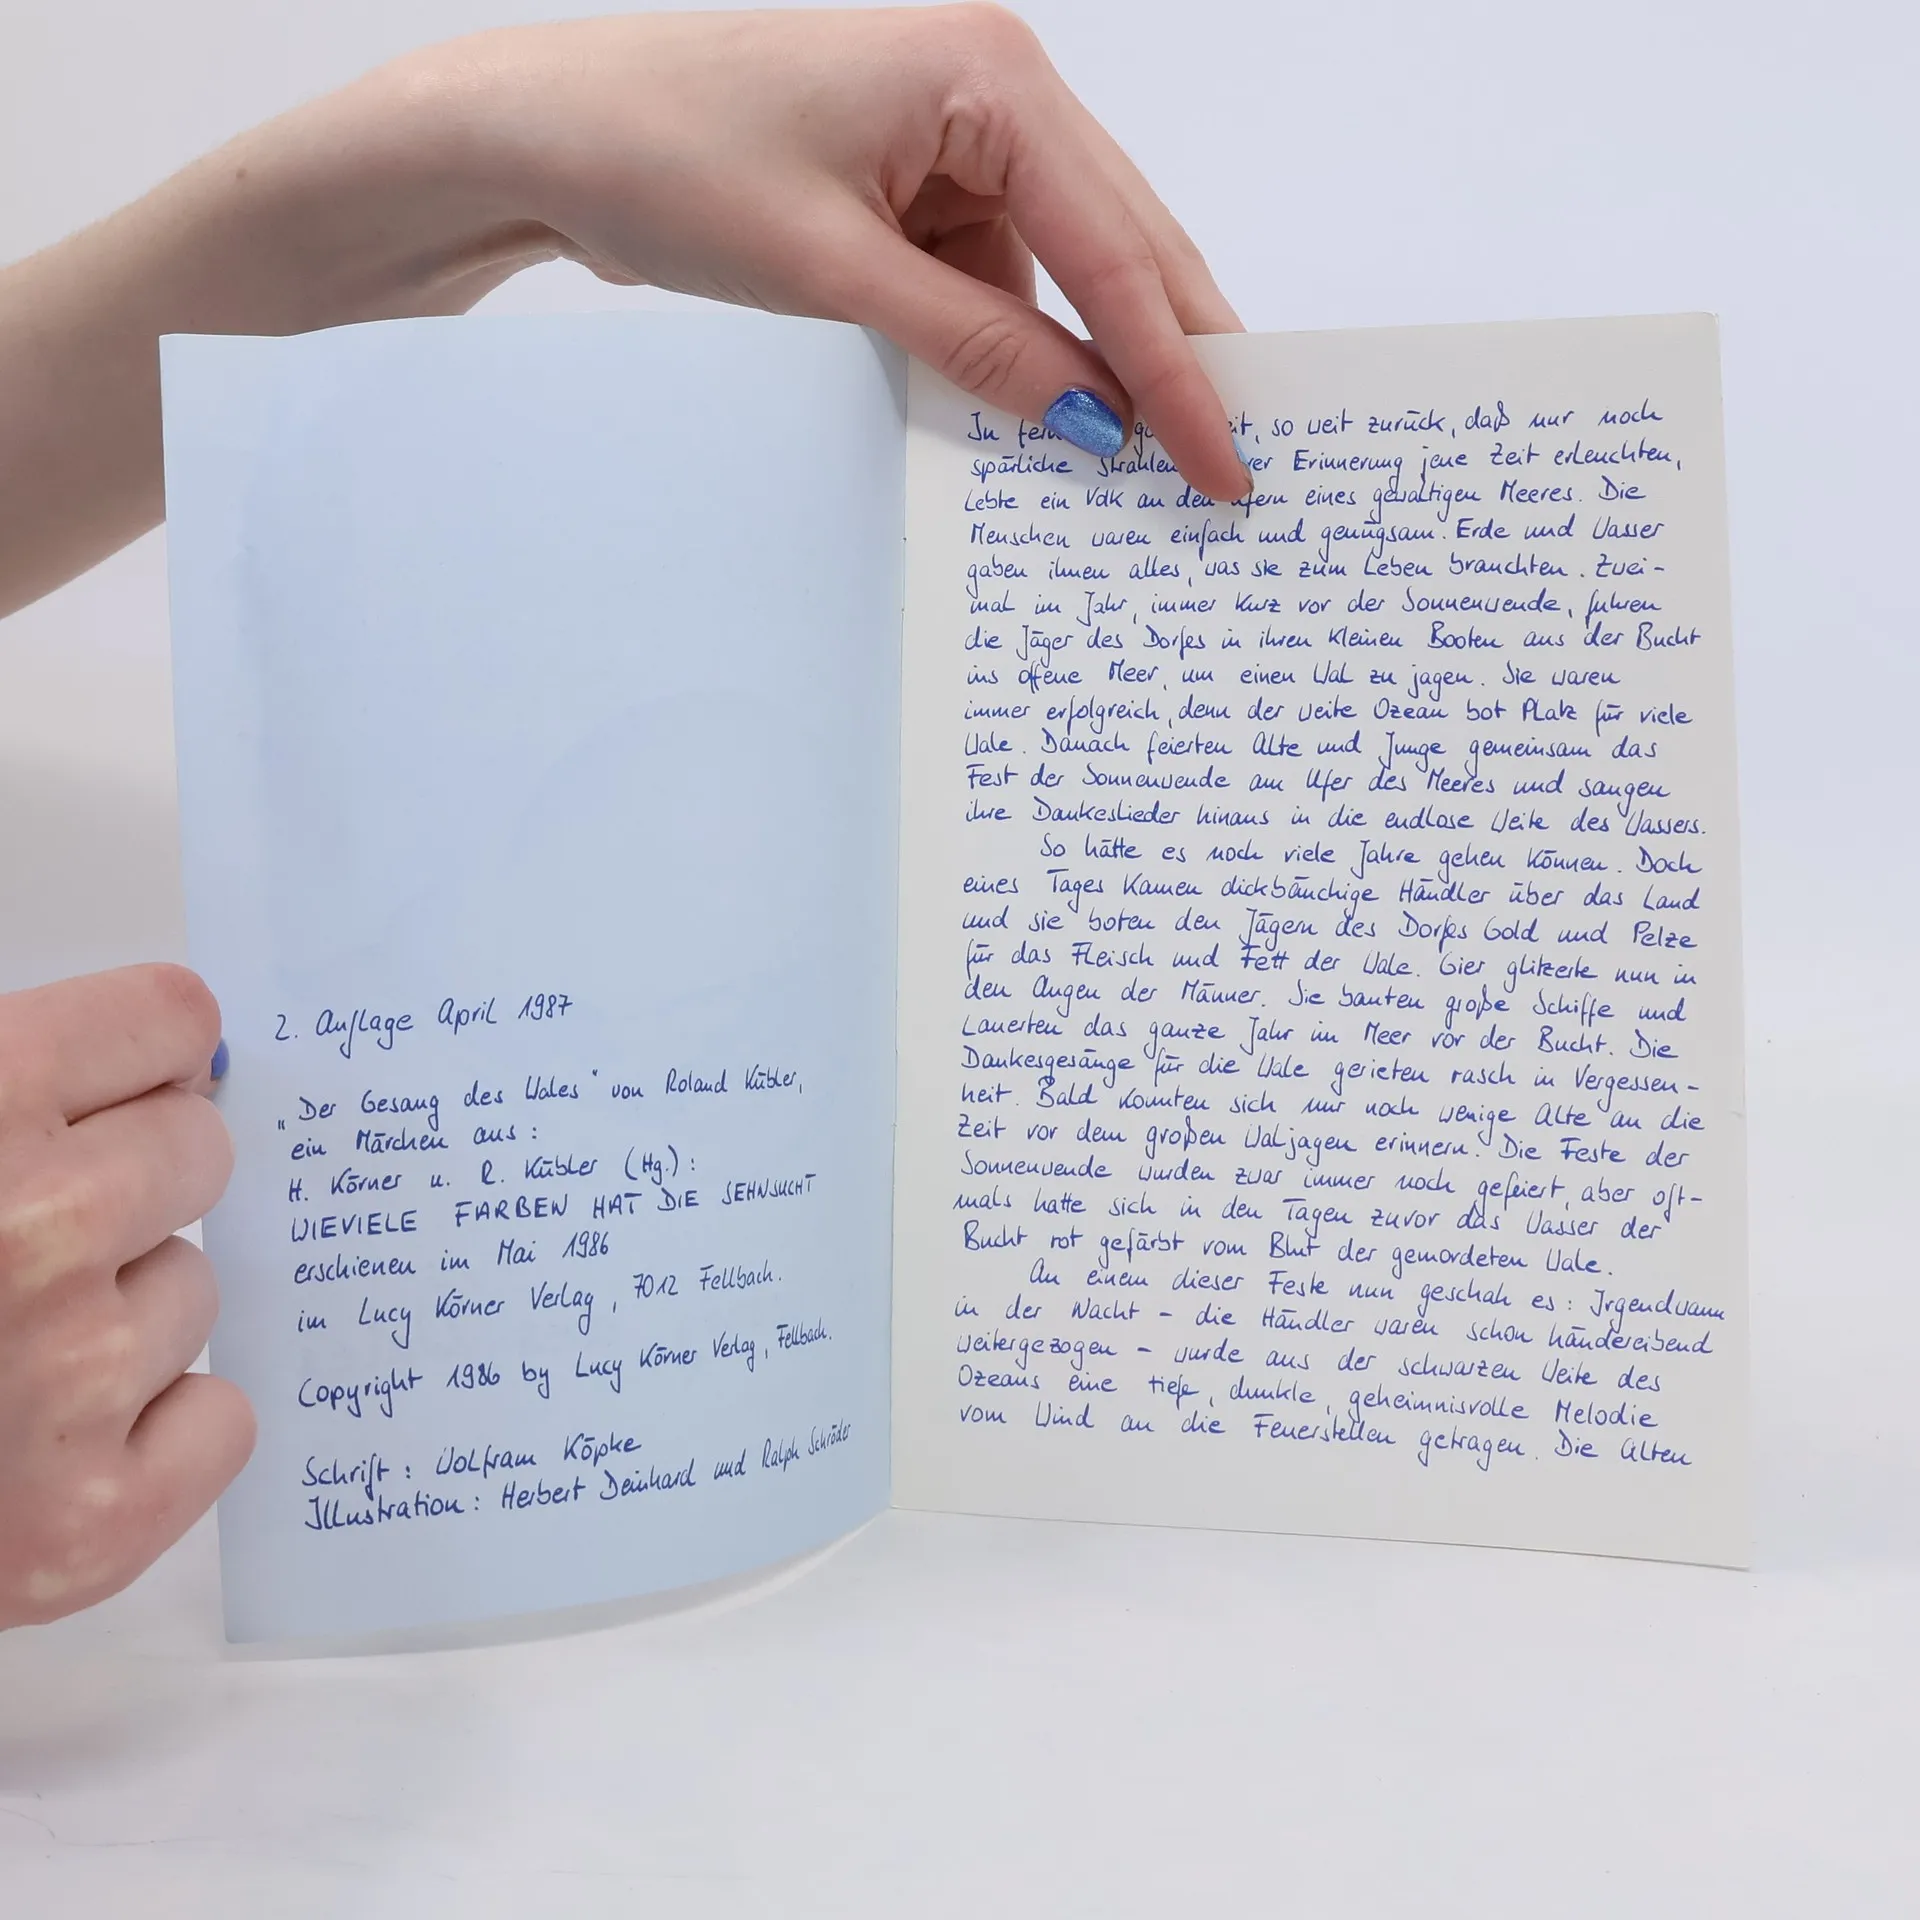 2. Auflage April 1987
„Der Gesang des Wales" von Roland Kübler,
ein Märchen aus:
H. Körner u. R. Kübler (Hg.):
WIEVIELE FARBEN HAT DIE SEHNSUCHT
erschienen im Mai 1986
im Lucy Körner Verlag, 7012 Fellbach.
Copyright 1986 by Lucy Körner Verlag, Fellbach.
Schrift: Wolfram Köpke
Illustration: Herbert Deinhard und Ralph Schröder
In so weit zurück, daß nur noch
spärliche Strahlen Erinnerung jene Zeit erleuchten,
lebte ein Volk an den Ufern eines gewaltigen Meeres. Die
Menschen waren einfach und genügsam. Erde und Wasser
gaben ihnen alles, was sie zum Leben brauchten. Zwei-
mal im Jahr, immer kurz vor der Sonnenwende, fuhren
die Jäger des Dorfes in ihren kleinen Booten aus der Bucht
ins offene Meer, um einen Wal zu jagen. Sie waren
immer erfolgreich, denn der weite Ozean bot Platz für viele
Wale. Danach feierten Alte und Junge gemeinsam das
Fest der Sonnenwende am Ufer des Meeres und sangen
ihre Dankeslieder hinaus in die endlose Weite des Wassers.
So hätte es noch viele Jahre gehen können. Doch
eines Tages kamen dickbäuchige Händler über das Land
und sie boten den Jägern des Dorfes Gold und Pelze
für das Fleisch und Fett der Wale. Gier glitzerte nun in
den Augen der Männer. Sie bauten große Schiffe und
lauerten das ganze Jahr im Meer vor der Bucht. Die
Dankesgesänge für die Wale gerieten rasch in Vergessen-
heit. Bald konnten sich nur noch wenige Alte an die
Zeit vor dem großen Waljagen erinnern. Die Feste der
Sonnenwende wurden zwar immer noch gefeiert, aber oft-
mals hatte sich in den Tagen zuvor das Wasser der
Bucht rot gefärbt vom Blut der gemordeten Wale.
An einem dieser Feste nun geschah es: Irgendwann
in der Nacht - die Händler waren schon händereibend
weitergezogen - wurde aus der schwarzen Weite des
Ozeans eine tiefe, dunkle, geheimnisvolle Melodie
vom Wind an die Feuerstellen getragen. Die Alten